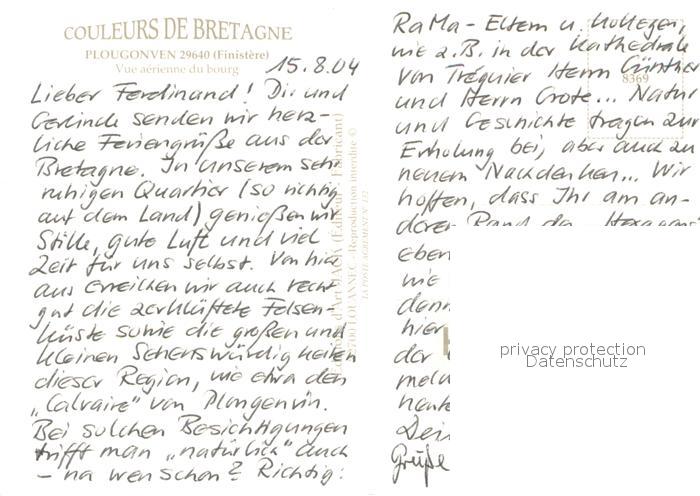 COULEURS DE BRETAGNE
PLOUGONVEN 29640 (Finistère)
Vue aérienne du bourg
15.8.04
Lieber Ferdinand! Dir und
Gerlinde senden wir herz-
liche Feriengrüße aus der
Bretagne. In unserem sehr
ruhigen Quartier (so richtig
auf dem Land) genießen wir
Stille, gute Luft und viel
Zeit für uns selbst. Von hier
aus erreichen wir auch recht
gut die zerklüftete Felsen-
küste sowie die großen und
kleinen Sehenswürdigkeiten
dieser Region, wie etwa den
„Calvaire" von Plougonvin.
Bei solchen Besichtigungen
trifft man „natürlich" auch
– na wen schon? Richtig:
RaMa-Eltern u. Kollegen,
wie z.B. in der Kathedrale
von Tréguier Herrn Günther
8369
und Herrn Grote... Natur
und Geschichte tragen zur
Erholung bei, aber auch zu
neuem Nachdenken... Wir
hoffen, dass Ihr am an-
deren Rand
eben
wie
dann
hier
der
heute
Dein
Grüße
privacy protection
Datenschutz